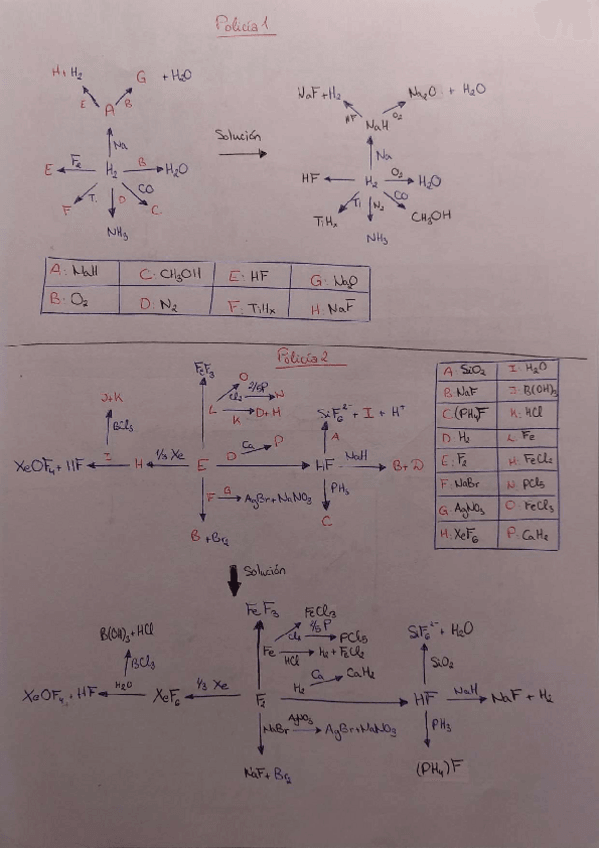 Policía 1
H + H₂
G + H₂O
NaF + H₂
Na₂O + H₂O
E
B
A
HF
O₂
NaH
Na
Solución
Na
E
F₂
H₂
B
H₂O
HF
H₂
O₂
H₂O
Ti
D
CO
Ti
N₂
CO
F
C
TiHx
CH₃OH
NH₃
NH₃
A: NaH
C: CH₃OH
E: HF
G: Na₂O
B: O₂
D: N₂
F: TiHx
H: NaF
Policía 2
FeF₃
O
Cl₂
2/5P
N
L
K
D + H
SiF₆²⁻ + I + H⁺
J + K
BCl₃
I
A
XeOF₄ + HF
H
1/3 Xe
E
D
Ca
P
HF
NaH
B + D
F
G
AgBr + NaNO₃
PH₃
B + Br₂
C
A: SiO₂
I: H₂O
B: NaF
J: B(OH)₃
C: (PH₄)F
K: HCl
D: H₂
L: Fe
E: F₂
H: FeCl₂
F: NaBr
N: PCl₅
G: AgNO₃
O: FeCl₃
H: XeF₆
P: CaH₂
Solución
FeF₃
FeCl₃
Cl₂
PCl₅
Fe
HCl
H₂ + FeCl₂
B(OH)₃ + HCl
BCl₃
SiF₆²⁻ + H₂O
SiO₂
XeOF₄ + HF
H₂O
XeF₆
1/3 Xe
F₂
H₂
Ca
CaH₂
HF
NaH
NaF + H₂
NaBr
AgNO₃
AgBr + NaNO₃
PH₃
NaF + Br₂
(PH₄)F